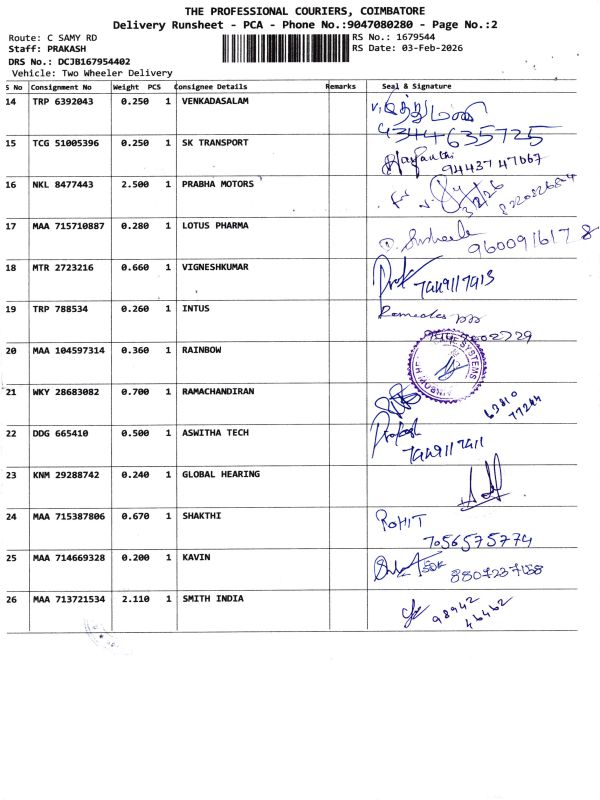 THE PROFESSIONAL COURIERS, COIMBATORE
Delivery Runsheet - PCA - Phone No.:9047080280 - Page No.:2
Route: C SAMY RD
RS No.: 1679544
Staff: PRAKASH
RS Date: 03-Feb-2026
DRS No.: DCJB167954402
Vehicle: Two Wheeler Delivery
S No Consignment No Weight PCS Consignee Details Remarks Seal & Signature
14 TRP 6392043 0.250 1 VENKADASALAM
4344635725
15 TCG 51005396 0.250 1 SK TRANSPORT
9443747667
16 NKL 8477443 2.500 1 PRABHA MOTORS
3/2/26
17 MAA 715710887 0.280 1 LOTUS PHARMA
D. Susheela
9600916178
18 MTR 2723216 0.660 1 VIGNESHKUMAR
19 TRP 788534 0.260 1 INTUS
20 MAA 104597314 0.360 1 RAINBOW
21 WKY 28683082 0.700 1 RAMACHANDIRAN
63810
77244
22 DDG 665410 0.500 1 ASWITHA TECH
Prakash
23 KNM 29288742 0.240 1 GLOBAL HEARING
24 MAA 715387806 0.670 1 SHAKTHI
ROHIT
7056575774
25 MAA 714669328 0.200 1 KAVIN
8807237158
26 MAA 713721534 2.110 1 SMITH INDIA
98942
46462